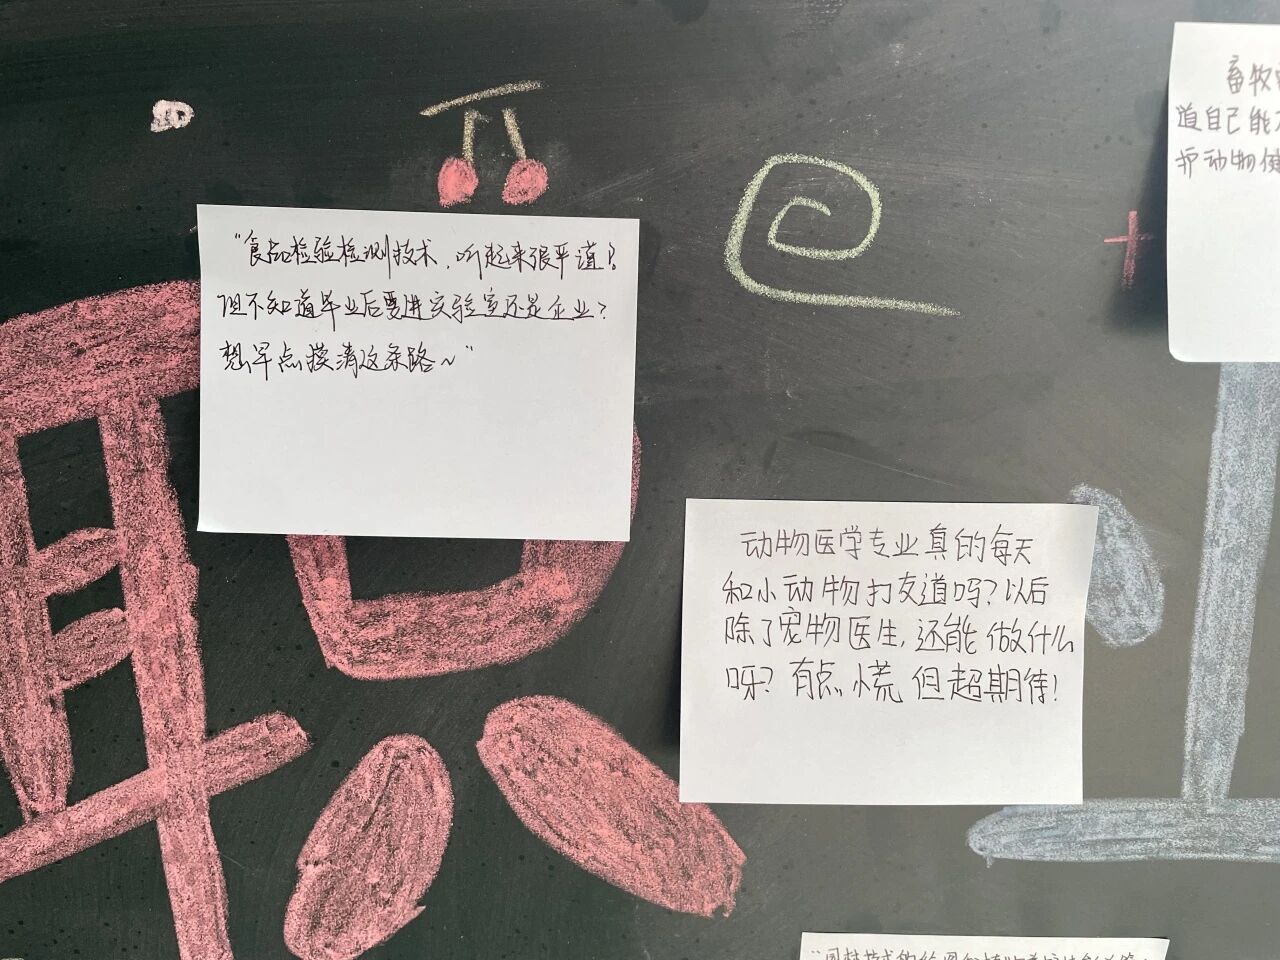 “食品检验检测技术，听起来很平道？
但不知道毕业后要进实验室还是企业？
想早点摸清这条路～”
动物医学专业真的每天
和小动物打交道吗？以后
除了宠物医生，还能做什么
呀？有点小慌，但超期待！
畜牧
道自己能
护动物健
职业